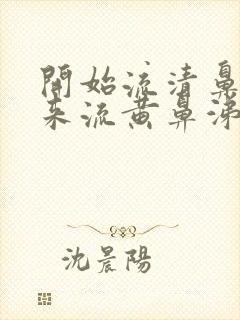 開始流清鼻
来流黄鼻涕
沈晨陽